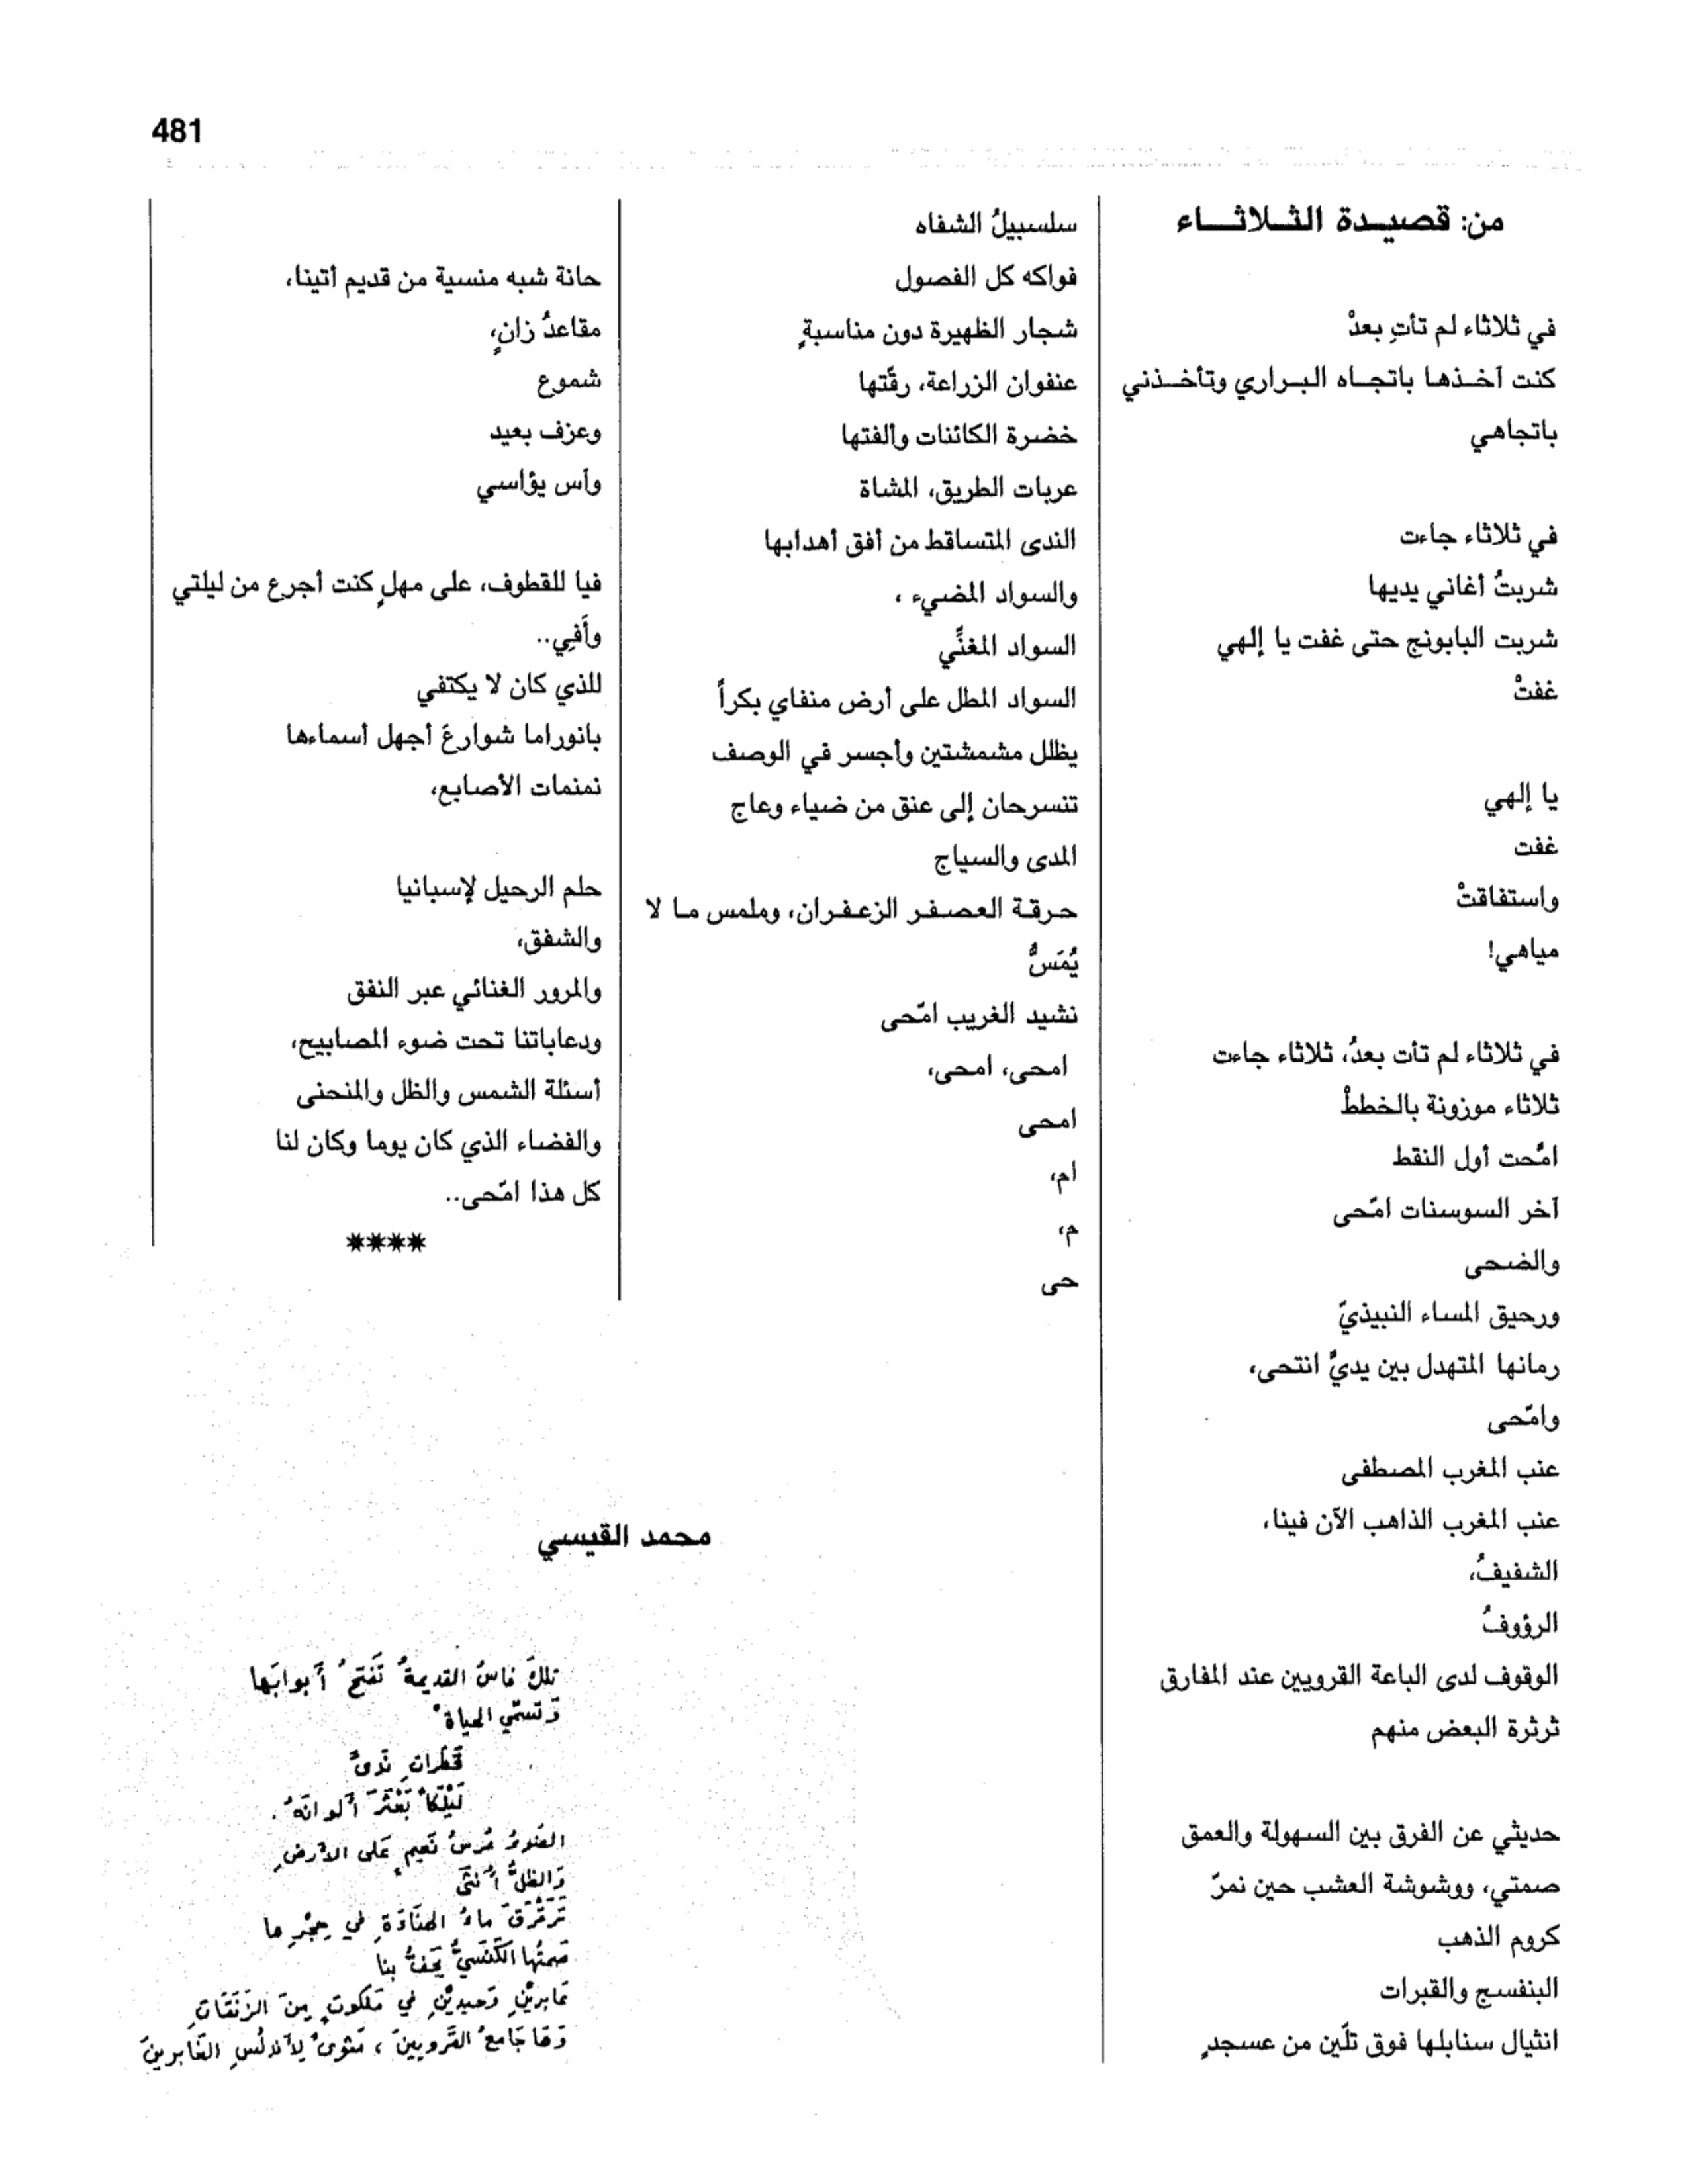 481
من: قصيدة الثلاثاء
في ثلاثاء لم تأتِ بعدْ
كنت آخذها باتجاه البراري وتأخذني
باتجاهي
في ثلاثاء جاءت
شربتُ أغاني يديها
شربت البابونج حتى غفت يا إلهي
غفتْ
يا إلهي
غفت
واستفاقتْ
مياهي!
في ثلاثاء لم تأت بعدُ، ثلاثاء جاءت
ثلاثاء موزونة بالخططْ
امّحت أول النقط
آخر السوسنات امّحى
والضحى
ورحيق المساء النبيذيّ
رمانها المتهدل بين يديّ انتحى،
وامّحى
عنب المغرب المصطفى
عنب المغرب الذاهب الآن فينا،
الشفيفُ،
الرؤوفُ
الوقوف لدى الباعة القرويين عند المفارق
ثرثرة البعض منهم
حديثي عن الفرق بين السهولة والعمق
صمتي، ووشوشة العشب حين نمرّ
كروم الذهب
البنفسج والقبرات
انثيال سنابلها فوق تلّين من عسجدٍ
سلسبيلُ الشفاه
فواكه كل الفصول
شجار الظهيرة دون مناسبةٍ
عنفوان الزراعة، رقّتها
خضرة الكائنات وألفتها
عربات الطريق، المشاة
الندى المتساقط من أفق أهدابها
والسواد المضيء ،
السواد المغنِّي
السواد المطل على أرض منفاي بكراً
يظلل مشمشتين وأجسر في الوصف
تنسرحان إلى عنق من ضياء وعاج
المدى والسياج
حرقة العصفر الزعفران، وملمس ما لا
يُمَسُّ
نشيد الغريب امّحى
امحى، امحى،
امحى
ام،
م،
حى
حانة شبه منسية من قديم أتينا،
مقاعدُ زانٍ،
شموع
وعزف بعيد
وآس يؤاسي
فيا للقطوف، على مهلٍ كنت أجرع من ليلتي
وأَفي..
للذي كان لا يكتفي
بانوراما شوارعَ أجهل أسماءها
نمنمات الأصابع،
حلم الرحيل لإسبانيا
والشفق،
والمرور الغنائي عبر النفق
ودعاباتنا تحت ضوء المصابيح،
أسئلة الشمس والظل والمنحنى
والفضاء الذي كان يوما وكان لنا
كل هذا امّحى..
****
محمد القيسي
تلكَ فاسُ القديمةُ تَفتحُ أَبوابَها
وَتسمّي الحياةَ
قطراتِ نَدىً
لَيْلَكاً بَعْثَرَ أَلوانَهُ .
الضَوءُ عُرسُ نَعيمٍ عَلى الأرضِ
وَالظلُّ أُنثى
تَرَقْرَقَ ماءُ في حِجْرِها
صَمتُها بنا
عَابرَيْنِ وَحيدَيْنِ في مَلكوتٍ مِنَ الزَنَقَاتِ
وَهَا جَامعُ القَرويينَ ، مَثوىً لأندلُسِ الغَابرينَ